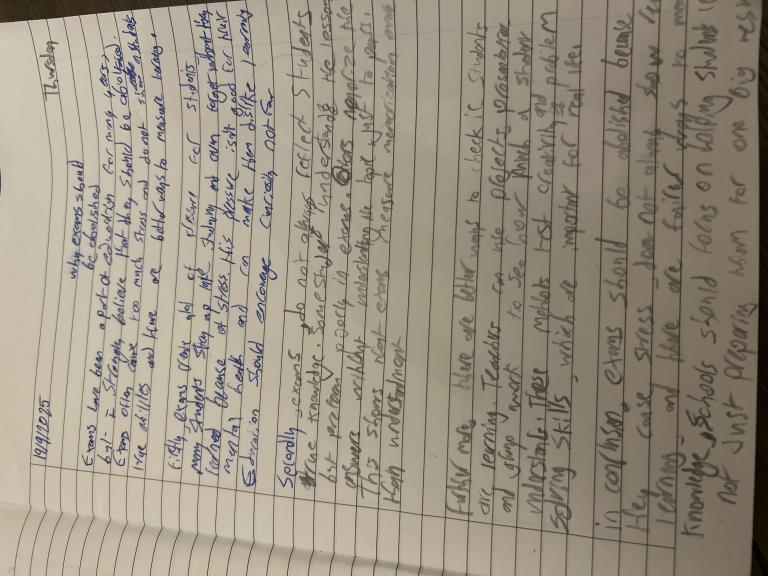 19/9/2025 Thursday
why exams should
be abolished
Exams have been a part of education for many years,
but I strongly believe that they should be abolished.
Exams often cause too much stress and do not students
true skills and there are better ways to measure learning.
Firstly, exams create a lot of pressure for students
many students stay up late studying and even forget what they
learned because of stress. this pressure isn't good for their
mental health and can make them dislike learning
Education should encourage curiosity not fear
Secondly exams do not always reflect students
true knowledge. some students understands the lesson
but perform poorly in exams. Others memorize the
answers without understanding the topic just to pass.
This shows that exams measure memorization more
than understandment
Further more, there are better ways to check if students
are learning. Teachers can use projects, presentation
and group work to see how much a student
understands. These methods test creativity and problem
solving skills, which are important for real life.
in conclusion, exams should be abolished because
they cause stress, does not always show real
learning, and there are fairer ways to
knowledge, Schools should focus on helping student
not just preparing them for one big